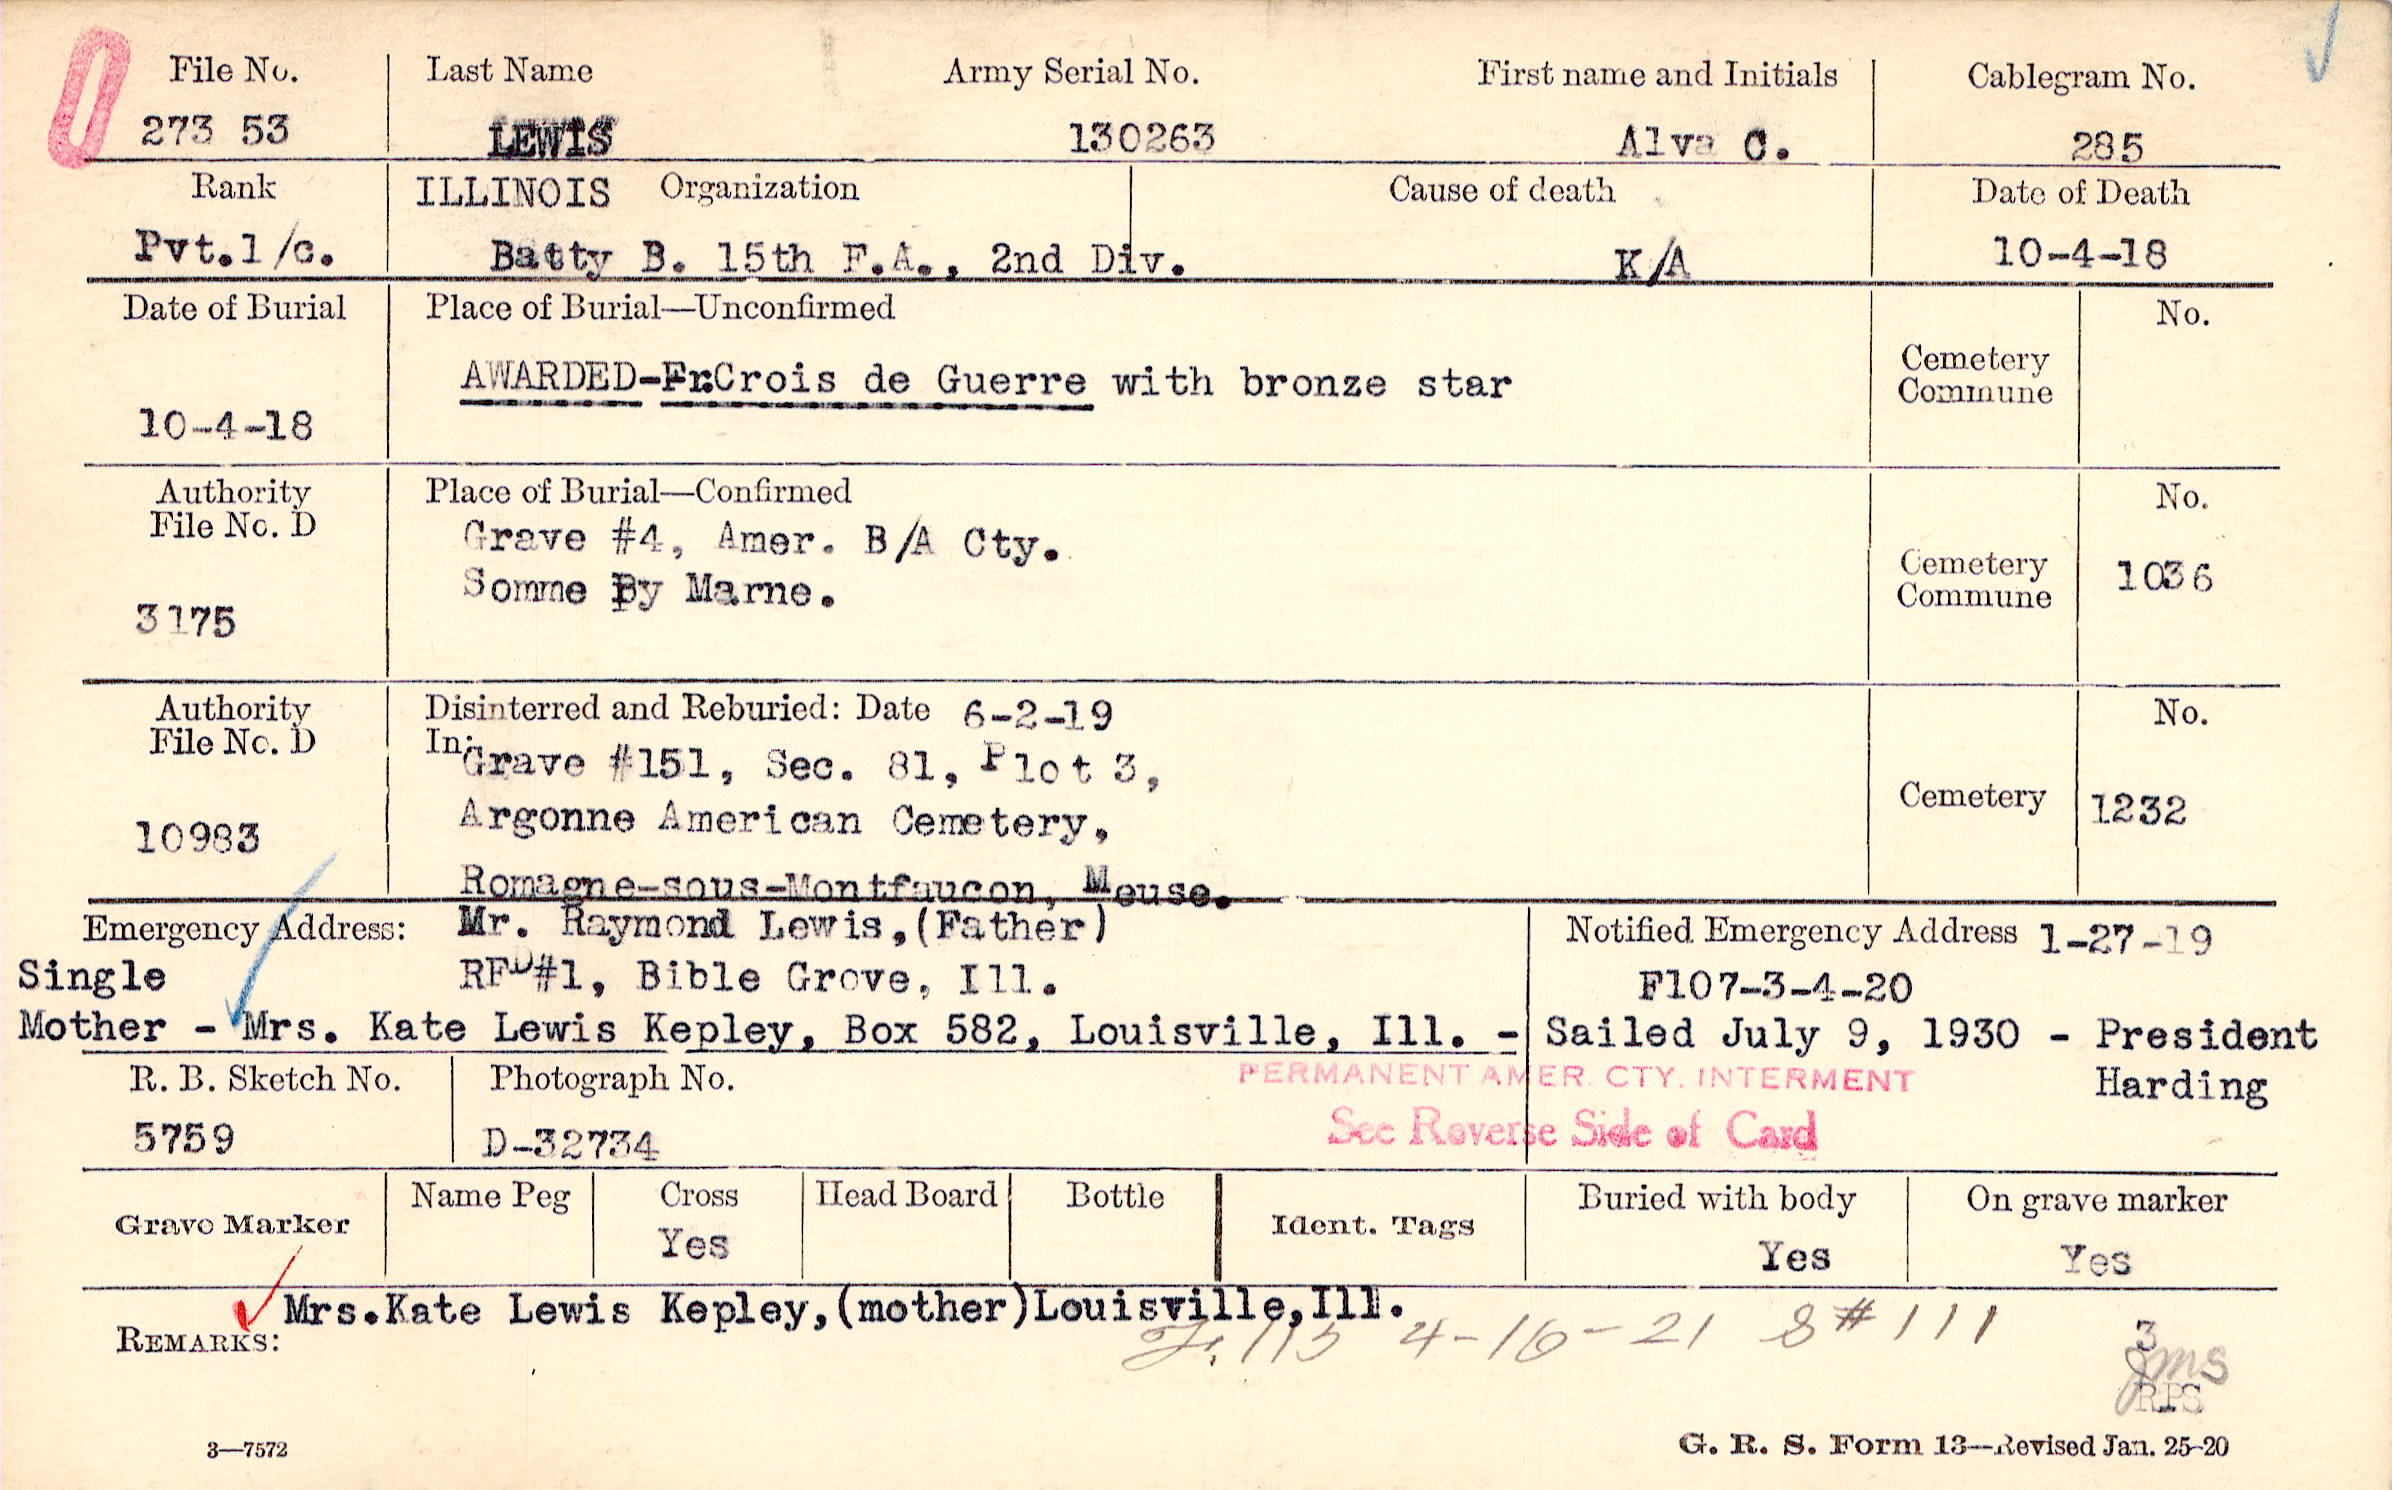 File No. Last Name Army Serial No. First name and Initials Cablegram No.
273 53 LEWIS 130263 Alva C. 285
Rank ILLINOIS Organization Cause of death Date of Death
Pvt.1/c. Batty B. 15th F.A., 2nd Div. K/A 10-4-18
Date of Burial Place of Burial—Unconfirmed No.
Cemetery
Commune
AWARDED-Fr.Crois de Guerre with bronze star
10-4-18
Authority Place of Burial—Confirmed No.
File No. D Grave #4, Amer. B/A Cty.
Cemetery
Commune 1036
Somme By Marne.
3175
Authority Disinterred and Reburied: Date 6-2-19 No.
File No. D In:
Grave #151, Sec. 81, Plot 3,
Cemetery 1232
Argonne American Cemetery,
10983
Romagne-sous-Montfaucon, Meuse.
Emergency Address: Mr. Raymond Lewis,(Father) Notified Emergency Address 1-27-19
Single RFD#1, Bible Grove, Ill. F107-3-4-20
Mother - Mrs. Kate Lewis Kepley, Box 582, Louisville, Ill. - Sailed July 9, 1930 - President
Harding
R. B. Sketch No. Photograph No. PERMANENT AMER. CTY. INTERMENT
5759 D-32734 See Reverse Side of Card
Grave Marker Name Peg Cross Head Board Bottle Ident. Tags Buried with body On grave marker
Yes Yes Yes
Mrs.Kate Lewis Kepley,(mother)Louisville,Ill.
REMARKS: 113 4-16-21 S#111
3
jms
RPS
3—7572 G. R. S. Form 13—Revised Jan. 25-20